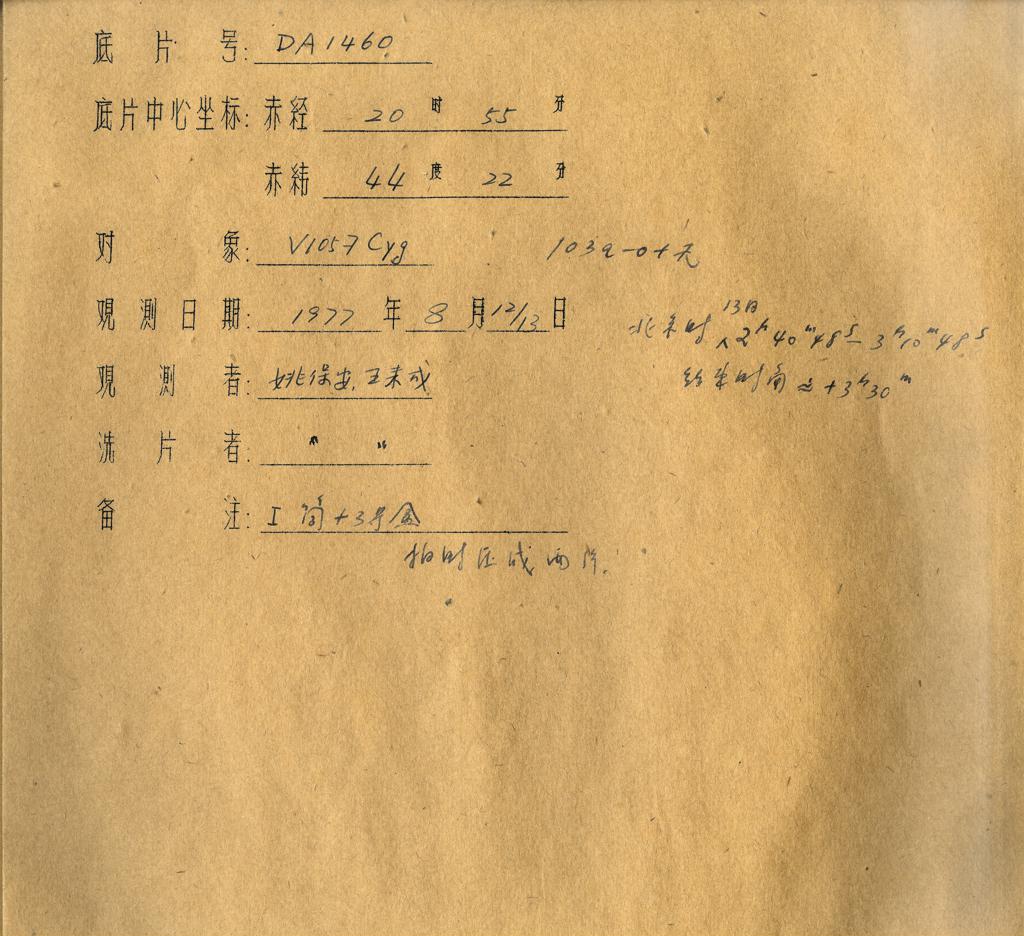 底片号: DA1460
底片中心坐标: 赤经 20 时 55 分
赤纬 44 度 22 分
对象: V1057 Cyg 103a-O+无
观测日期: 1977 年 8 月 12/13 日
13日
北京时 2ʰ40ᵐ48ˢ-3ʰ10ᵐ48ˢ
观测者: 姚保安. 王来成
结束时角 ≏ +3ʰ30ᵐ
洗片者: 〃 〃
备注: I 筒+3号盒
拍时压成两片.